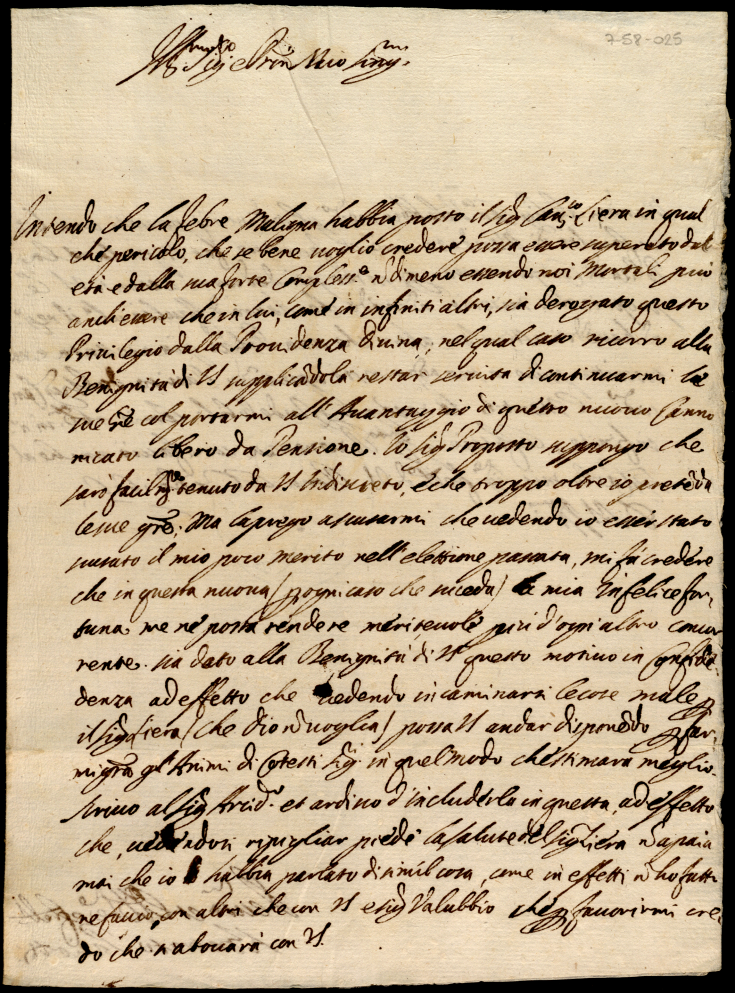 7-58-025
Ill.mo Sig.r e Pron Mio Sing.mo
Intendo che la febre Maligna habbia posto il Sig. Can.co Liera in qual
che pericolo, che se bene uoglio credere possa essere superato dal
età e dalla sua forte Compless.e nõdimeno essendo noi Mortali può
anch'essere che in lui, come in infiniti altri, sia derogato questo
Priuilegio dalla Prouidenza diuina; nel qual caso ricorro alla
Benignità di VS supplicãdola restar seruita di continuarmi le
sue gr̃e col portarmi all'Auantaggio di questo nuouo Canno
nicato libero da Pensione. Io Sig. Proposto suppongo che
sarò facilm.te tenuto da VS Indiscreto, e che troppo oltre io pretẽda
le sue gr̃e; Ma la prego a scusarmi che uedendo io esser stato
scusato il mio poco merito nell'elettione passata, mi fà credere
che in questa nuoua / p ogni caso che succeda / la mia Infelice for,
tuna me ne possa rendere meriteuole più d'ogni altro concor
rente. sia dato alla Benignità di VS questo motiuo in Confi
denza ad effetto che uedendo incaminarsi le cose male p
il Sig. Liera / che Dio nõ uoglia / possa VS andar disponẽdo p far,
mi gr̃a gl'Animi di Cotesti Sig.ri in quel modo che stimarà meglio.
Scriuo al Sig. Arcid.o et ardisco d'includerla in questa, ad effetto
che, uedendosi ripigliar piede la salute del Sig. Liera nõ apaia
mai che io habbia parlato di simil cosa, come in effetti nõ ho fatto
ne faccio con altri che con VS e Sig. Valubbio che p fauorirmi cre,
do che s'abocarà con VS.